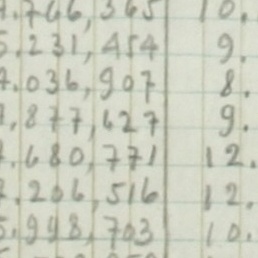 .766,365 10.
5.231,454 9.
7.036,907 8.
1.877,627 9.
.680,771 12.
7.206,516 12.
5.998,703 10.